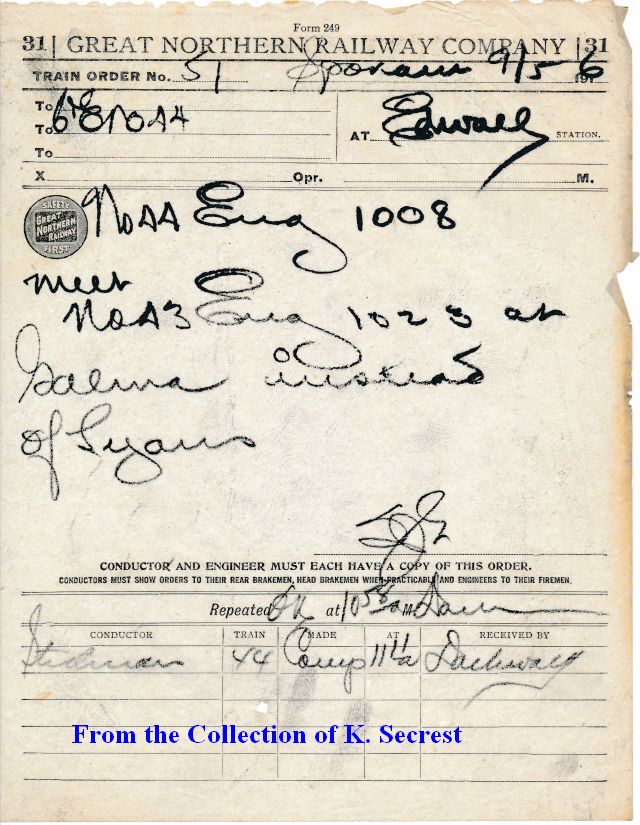 Form 249
31 GREAT NORTHERN RAILWAY COMPANY 31
TRAIN ORDER No. 51 9/5 6
191
To C&E No 44
To
AT Edwall STATION.
To
X Opr. M.
SAFETY
GREAT NORTHERN RAILWAY
FIRST
No 44 Eng 1008
meet
No 43 Eng 1023 at
Galena instead
of Lyons
CONDUCTOR AND ENGINEER MUST EACH HAVE A COPY OF THIS ORDER.
CONDUCTORS MUST SHOW ORDERS TO THEIR REAR BRAKEMEN, HEAD BRAKEMEN WHEN PRACTICABLE AND ENGINEERS TO THEIR FIREMEN.
Repeated at 1058a M
CONDUCTOR TRAIN MADE AT RECEIVED BY
44 Comp 1111a
From the Collection of K. Secrest